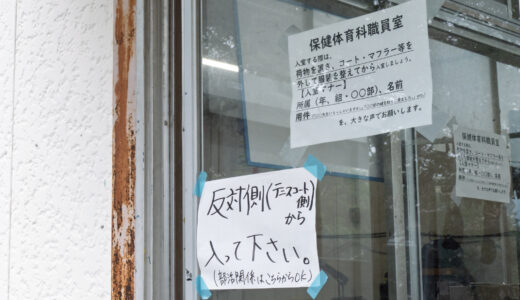 保健体育科職員室
入室する際は、
荷物を置き、コート・マフラー等を
外して服装を整えてから入室しましょう。
【入室マナー】
所属（年、組・〇〇部）、名前
用件
を、大きな声でお願いします。
保健体育科職員室
反対側(テニスコート側)から
入って下さい。
(部活関係はこちらからOK)